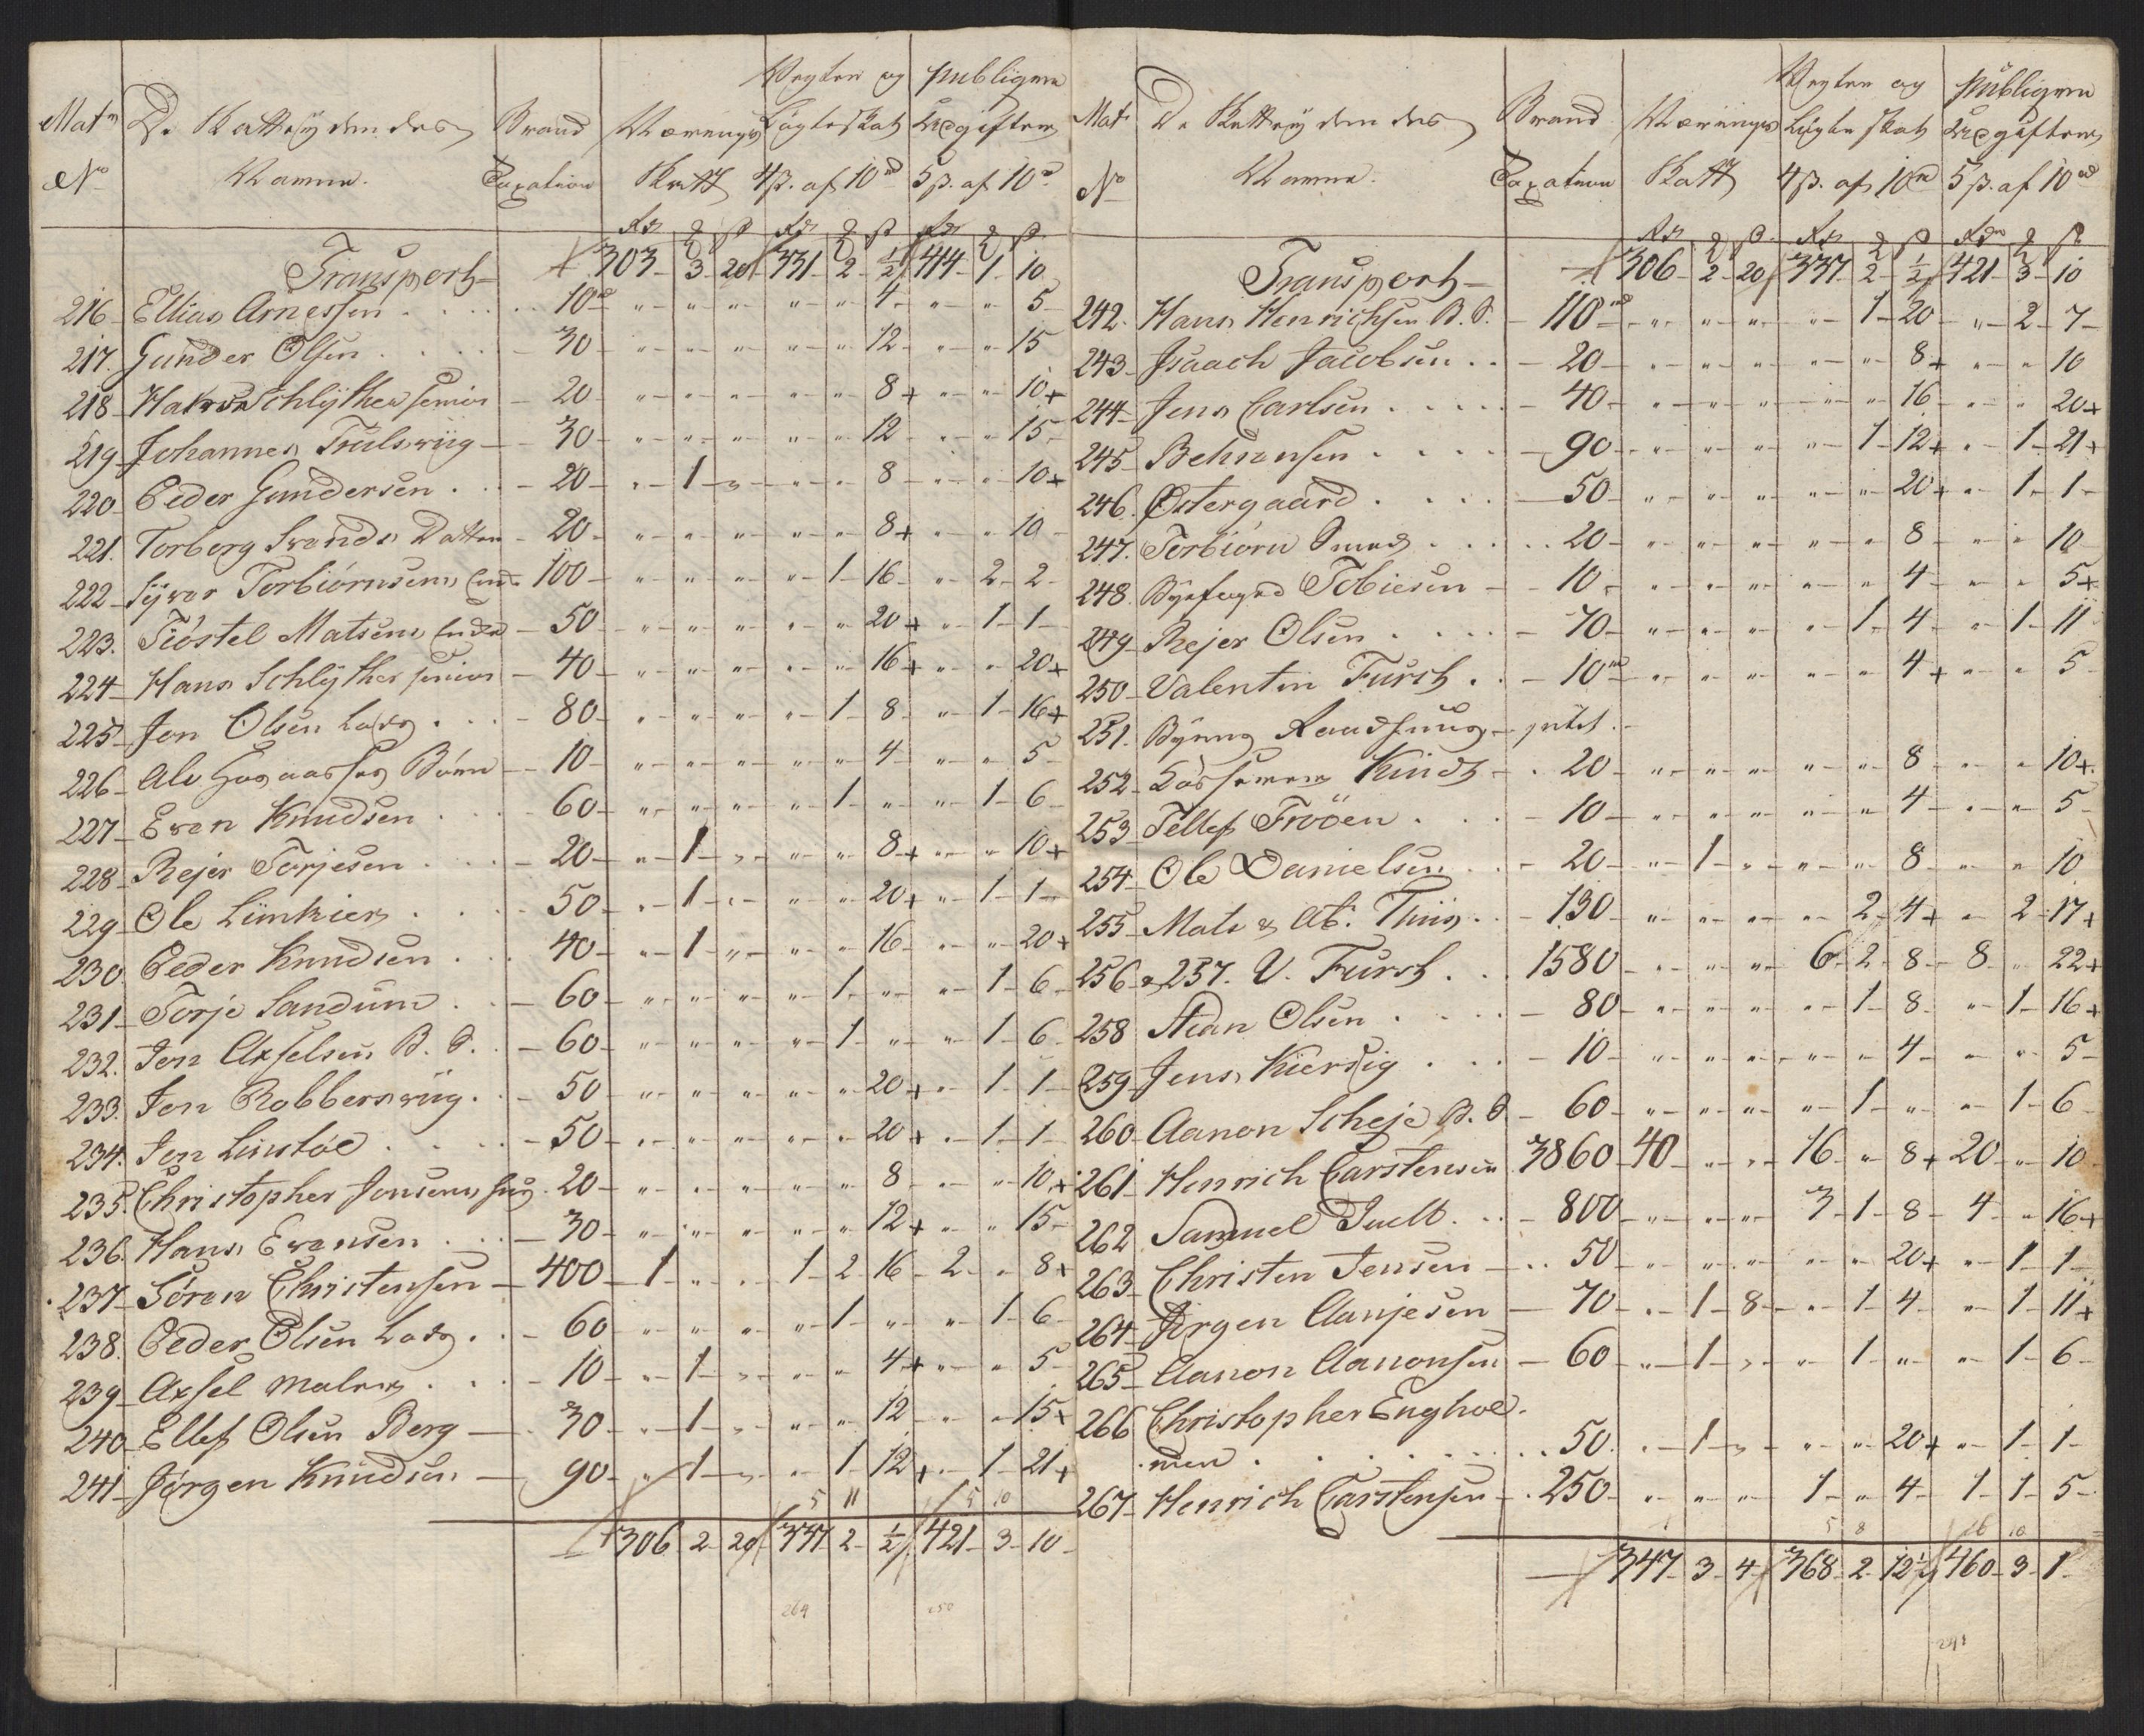 Matr No | De Skatteydendes Navne. | Brand Taxation | Nærings Skatt | Vegter og Løgteskat 4 ß. af 10 rd | publique Udgifter 5 ß. af 10 rd
Transport 303 - 3 - 20 | 331 - 2 - ½ | 414 - 1 - 10
216 Ellias Arnessen 10 rd " " " " " 4 " " 5
217. Gunder Olsen 30 " " " " " 12 " " 15
218 Schlyther senior 20 " " " " " 8+ " " 10+
219 Johannes Trulsviig 30 " " " " " 12 " " 15
220 Peder Gundersen 20 " 1 " " " 8 " " 10+
221. Torborg Svends Datter 20 " " " " " 8+ " " 10
222 Syver Torbiørnsens Enke 100 " " " " 1 16 " 2 2
223. Tiøstel Matsens Enke 50 " " " " " 20+ " 1 1
224 Hans Schlyther senior 40 " " " " " 16+ " " 20+
225 Jon Olsen Lods 80 " " " " 1 8 " 1 16+
226 Alv Børn 10 " " " " " 4 " " 5
227 Even Knudsen 60 " " " " 1 " " 1 6
228 Rejer Torjesen 20 " 1 " " " 8+ " " 10+
229 Ole Limkier 50 " 1 " " " 20+ " 1 1
230. Peder Knudsen 40 " 1 " " " 16 " " 20+
231 Torje Sandum 60 " " " " 1 " " 1 6
232. Jon Axselsen B. S. 60 " " " " 1 " " 1 6
233. Jon Robbersviig 50 " " " " " 20+ " 1 1
234. Jon Linstøl 50 " " " " " 20+ " 1 1
235. Christopher Jonsens 20 " " " " " 8 " " 10+
236. Hans Evensen 30 " " " " " 12+ " " 15
237 Søren Christensen 400 1 " " 1 2 16 2 " 8+
238. Peder Olsen Lods 60 " " " " 1 " " 1 6
239 Axsel Maler 10 " 1 " " " 4+ " " 5
240 Ellef Olsen Berg 30 " 1 " " " 12 " " 15+
241 Jørgen Knudsen 90 " 1 " " 1 12+ " 1 21+
5 11 5 10
306 2 20 | 337 2 ½ | 421 3 10
264 250
Matr No | De Skatteydendes Navne. | Brand Taxation | Nærings Skatt | Vegter og Løgte skat 4 ß. af 10 rd | publique Udgifter 5 ß. af 10 rd
Transport 306 - 2 - 20 | 337 - 2 - ½ | 421 - 3 - 10
242. Hans Henrichsen B. S. 110 rd " " " " 1 20 " 2 7
243 Isaach Jacobsen 20 " " " " " 8+ " " 10
244 Jens Carlsen 40 " " " " " 16 " " 20+
245 Behrensen 90 " " " " 1 12+ " 1 21+
246. Østergaard 50 " " " " " 20+ " 1 1
247. Torbiørn Smed 20 " " " " " 8 " " 10
248. Byefoged Tobiesen 10 " " " " " 4 " " 5+
249 Rejer Olsen 70 " " " " 1 4 " 1 11
250 Valentin Fursh 10 rd " " " " " 4+ " " 5
251. Byens Raadhuus
252 Kindt 20 " " " " " 8 " " 10+
253 Tellef Frøøen 10 " " " " " 4 " " 5
254 Ole Danielsen 20 " 1 " " " 8 " " 10
255 Mats & At. Thiis 130 " " " " 2 4+ " 2 17+
256 & 257. V. Fursh 1580 " " " 6 2 8 8 " 22+
258 Stian Olsen 80 " " " " 1 8 " 1 16+
259 Jens Kiersig 10 " " " " " 4 " " 5
260 Aanon Scheje B. S 60 " " " " 1 " " 1 6
261 Henrich Carstensen 3860 40 " " 16 " 8+ 20 " 10
262 Samuel Juell 800 " " " 3 1 8 4 " 16+
263 Christen Jensen 50 " " " " " 20+ " 1 1
264 Jørgen Aanjesen 70 " 1 8 " 1 4 " 1 11+
265 Aanon Aanonsen 60 " 1 " " 1 " " 1 6
266 Christopher Enghol-
men 50 " 1 " " " 20+ " 1 1
267 Henrich Carstensen 250 " " " 1 " 4 1 1 5
5 8 16 10
347 3 4 | 368 2 12½ | 460 3 1
291